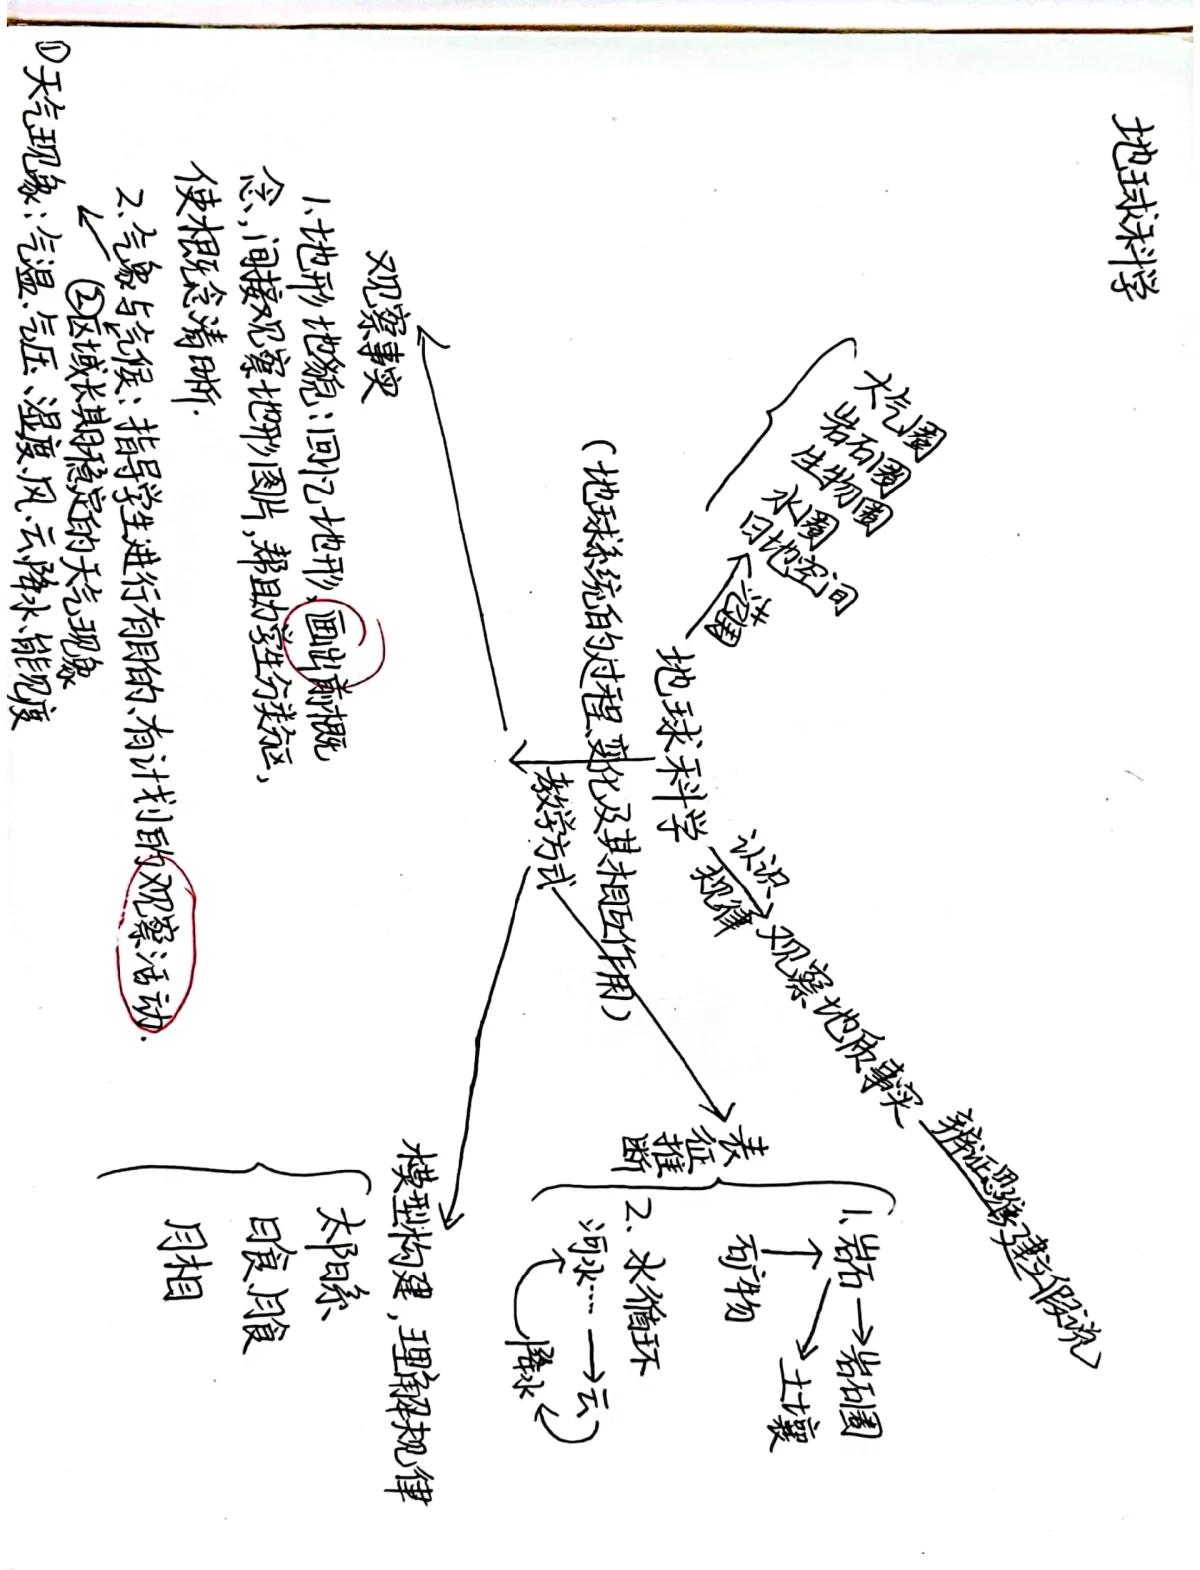 地球科学
大气圈
岩石圈
生物圈
水圈
日地空间
范畴
地球科学
(地球系统的过程、变化及其相互作用)
认识
规律
观察地质事实
辨证思维
建立假说
教学方式
观察事实
1.地形地貌:回忆地形、画出前概
念,间接观察地形图片,帮助学生分类分区,
使概念清晰.
2.气象与气候:指导学生进行有目的、有计划的观察活动.
②区域长期稳定的天气现象
①天气现象:气温、气压、湿度、风、云、降水、能见度
表征推断
1.岩石→岩石圈
矿物
土壤
2.水循环
河水……→云
降水
模型构建,理解规律
太阳系
日食、月食
月相